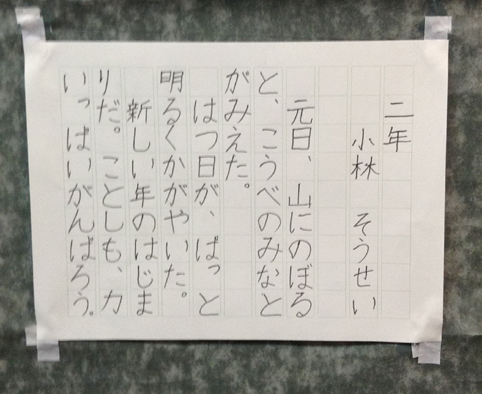 二年
小林 そうせい
元日、山にのぼる
と、こうべのみなと
がみえた。
はつ日が、ぱっと
明るくかがやいた。
新しい年のはじま
りだ。ことしも、力
いっぱいがんばろう。